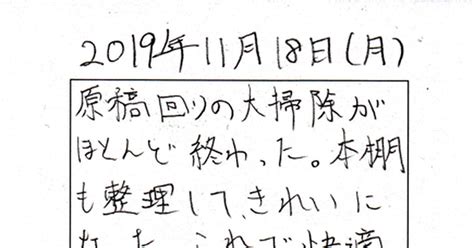 2019年11月18日(月)
原稿回りの大掃除が
ほとんど終わった。本棚
も整理して、きれいに
なった。これで快適